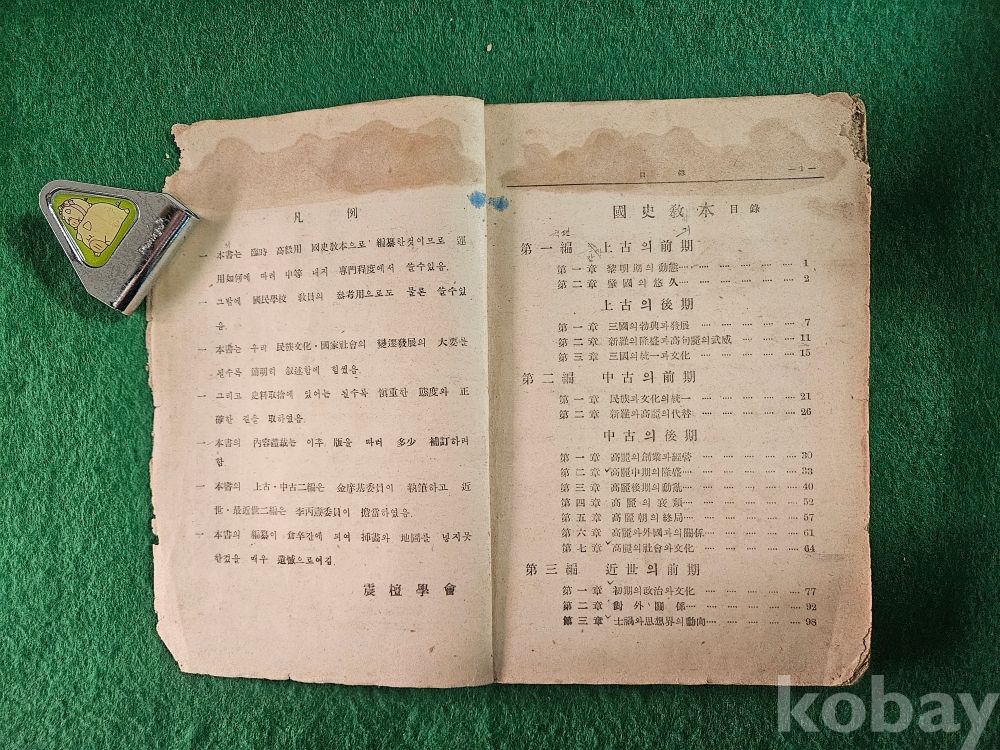 凡 例
一 本書는 臨時 高級用 國史敎本으로 編纂한것이므로 運
用如何에 따라 中等 내지 專門程度에서 쓸수있음.
一 그밖에 國民學校 敎員의 參考用으로도 물론 쓸수있
음.
一 本書는 우리 民族文化·國家社會의 變遷發展의 大要를
될수록 簡明히 叙述함에 힘썼음.
一 그리고 史料取捨에 있어는 될수록 愼重한 態度와 正
確한 길을 取하였음.
一 本書의 內容體裁는 이후 版을 따라 多少 補訂하려
함
一 本書의 上古·中古二編은 金庠基委員이 執筆하고 近
世·最近世二編은 李丙燾委員이 擔當하였음.
一 本書의 編纂이 倉卒간에 되여 揷畵와 地圖를 넣지못
함것을 매우 遺憾으로여김.
震檀學會
目 錄 —1—
國史敎本 目錄
第一編 上古의前期
第一章 黎明期의動態 1
第二章 肇國의悠久 2
上古의後期
第一章 三國의勃興과發展 7
第二章 新羅의隆盛과高句麗의武威 11
第三章 三國의統一과文化 15
第二編 中古의前期
第一章 民族과文化의統一 21
第二章 新羅와高麗의代替 26
中古의後期
第一章 高麗의創業과經營 30
第二章 高麗中期의隆盛 33
第三章 高麗後期의動亂 40
第四章 高麗의衰頹 52
第五章 高麗朝의終局 57
第六章 高麗와外國과의關係 61
第七章 高麗의社會와文化 64
第三編 近世의前期
第一章 初期의政治와文化 77
第二章 對外關係 92
第三章 士禍와思想界의動向 98
kobay